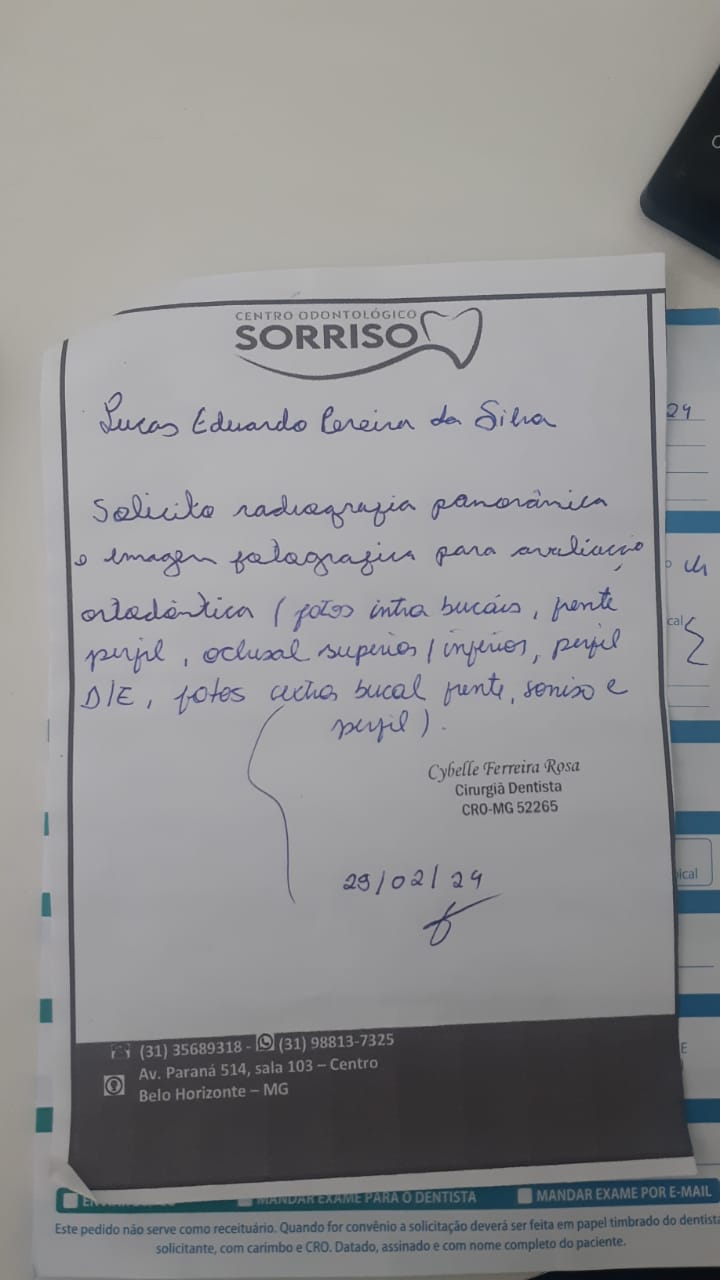 CENTRO ODONTOLÓGICO
SORRISO
Lucas Eduardo Pereira da Silva
Solicito radiografia panorâmica
e imagem fotografica para avaliação
ortodôntica (fotos intra bucais, frente
perfil, oclusal superior/inferior, perfil
D/E, fotos extra bucal frente, sorriso e
perfil).
Cybelle Ferreira Rosa
Cirurgiã Dentista
CRO-MG 52265
29/02/24
(31) 35689318 - (31) 98813-7325
Av. Paraná 514, sala 103 – Centro
Belo Horizonte – MG
24
cal
pical
E
MANDAR EXAME PARA O DENTISTA
MANDAR EXAME POR E-MAIL
Este pedido não serve como receituário. Quando for convênio a solicitação deverá ser feita em papel timbrado do dentista
solicitante, com carimbo e CRO. Datado, assinado e com nome completo do paciente.